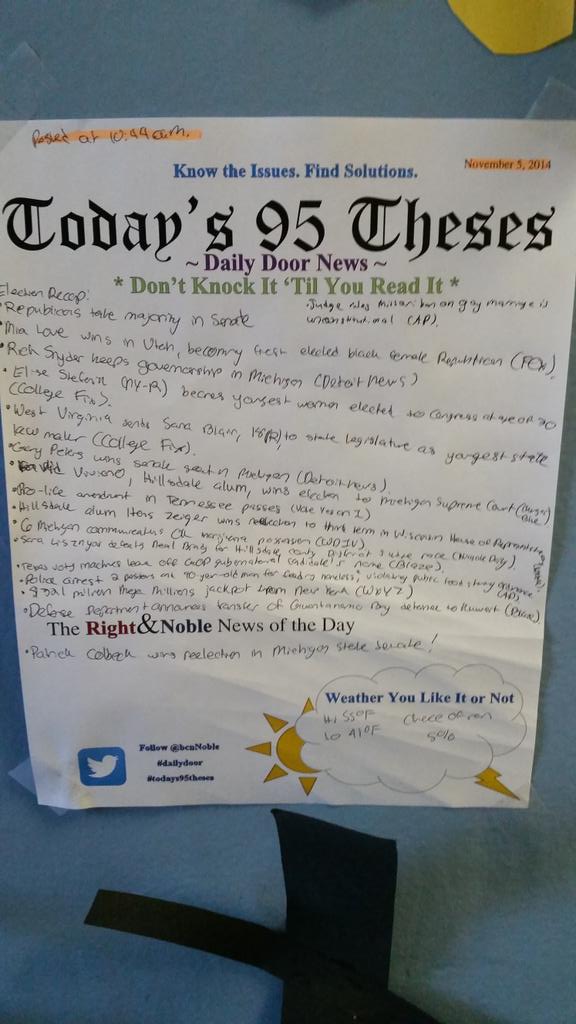 Posted at 10:44 a.m.
November 5, 2014
Know the Issues. Find Solutions.
Today's 95 Theses
~ Daily Door News ~
* Don't Knock It 'Til You Read It *
Election Recap:
Judge rules Missouri ban on gay marriage is
unconstitutional (AP).
• Republicans take majority in Senate
• Mia Love wins in Utah, becoming first elected black female Republican (FOX).
• Rick Snyder keeps governorship in Michigan (Detroit News)
• Elise Stefanik (NY-R) becomes youngest woman elected to Congress at age of 30
(College Fix).
• West Virginia sends Saira Blair, 18 (R) to state legislature as youngest state
law maker (College Fix).
• Gary Peters wins senate seat in Michigan (Detroit News).
• David Viviano, Hillsdale alum, wins election to Michigan Supreme Court
• Pro-life amendment in Tennessee passes (Vote Yes on 1)
• Hillsdale alum Hans Zeiger wins reelection to third term in House of Representatives
• 6 Michigan communities OK marijuana possession (WDIV)
• Sara Lisznyai defeats Neal Brady for Hillsdale County District Judge race (Hillsdale Daily)
• Texas voting machines leave off GOP gubernatorial candidate's name (Blaze).
• Police arrest 2 pastors and 90-year-old man for feeding homeless, violating public food sharing ordinance (AP)
• $321 million Mega Millions jackpot from New York (WXYZ)
• Defense Department announces transfer of Guantanamo Bay detainee to Kuwait
The Right&Noble News of the Day
• Patrick Colbeck wins reelection in Michigan state senate!
Weather You Like It or Not
Hi 55°F Chance of rain
Lo 41°F 80%
Follow @bcnNoble
#dailydoor
#todays95theses